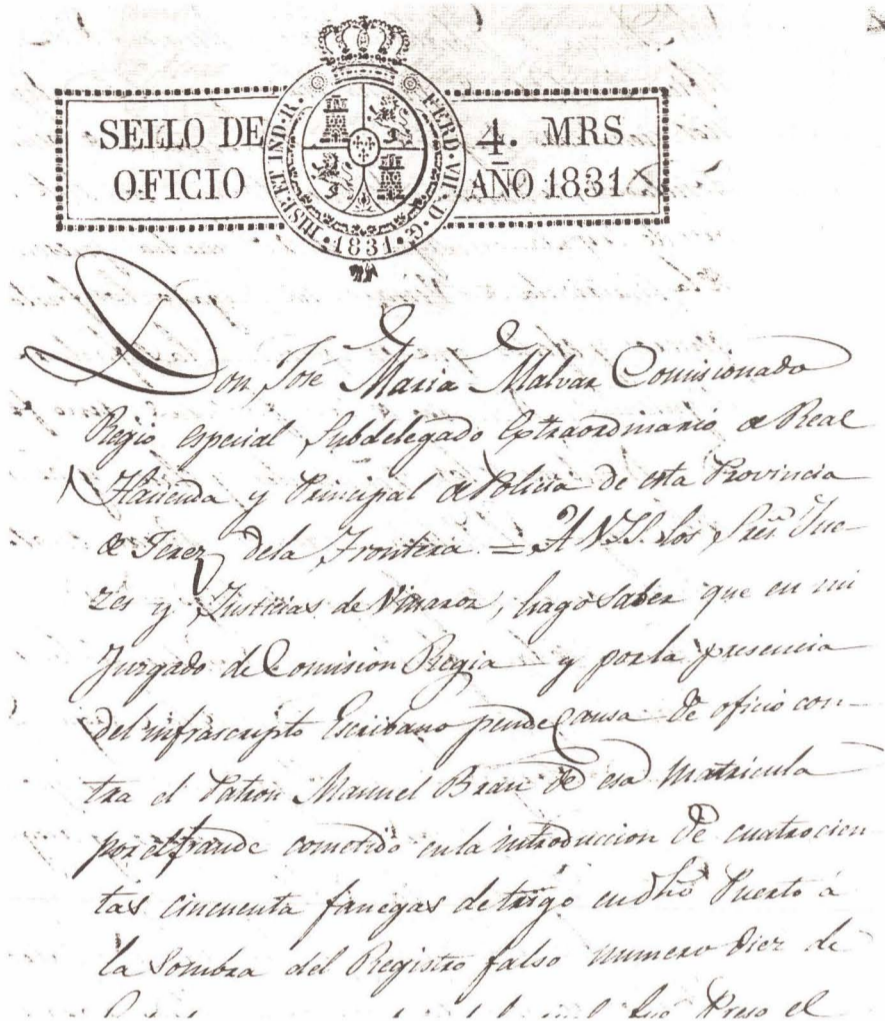 SELLO DE
OFICIO
HISP. ET IND. R.
FERD. VII. D. G.
1831
4. MRS
AÑO 1831
Don José Maria Malvar Comisionado
Regio especial Subdelegado Extraordinario de Real
Hacienda y Principal de Policia de esta Provincia
de Jerez dela Frontera = A V.S.S. los Sres. Jue-
zes y Justicias de Vinaroz, hago saber que en mi
Juzgado de Comision Regia y porla presencia
del infrascripto Escribano pende Causa de oficio con-
tra el Patron Manuel Bran de esa Matricula
por el fraude cometido enla introduccion de cuatrocien
tas cincuenta fanegas de trigo en dho Puerto á
la Sombra del Registro falso numero diez de
Preso el